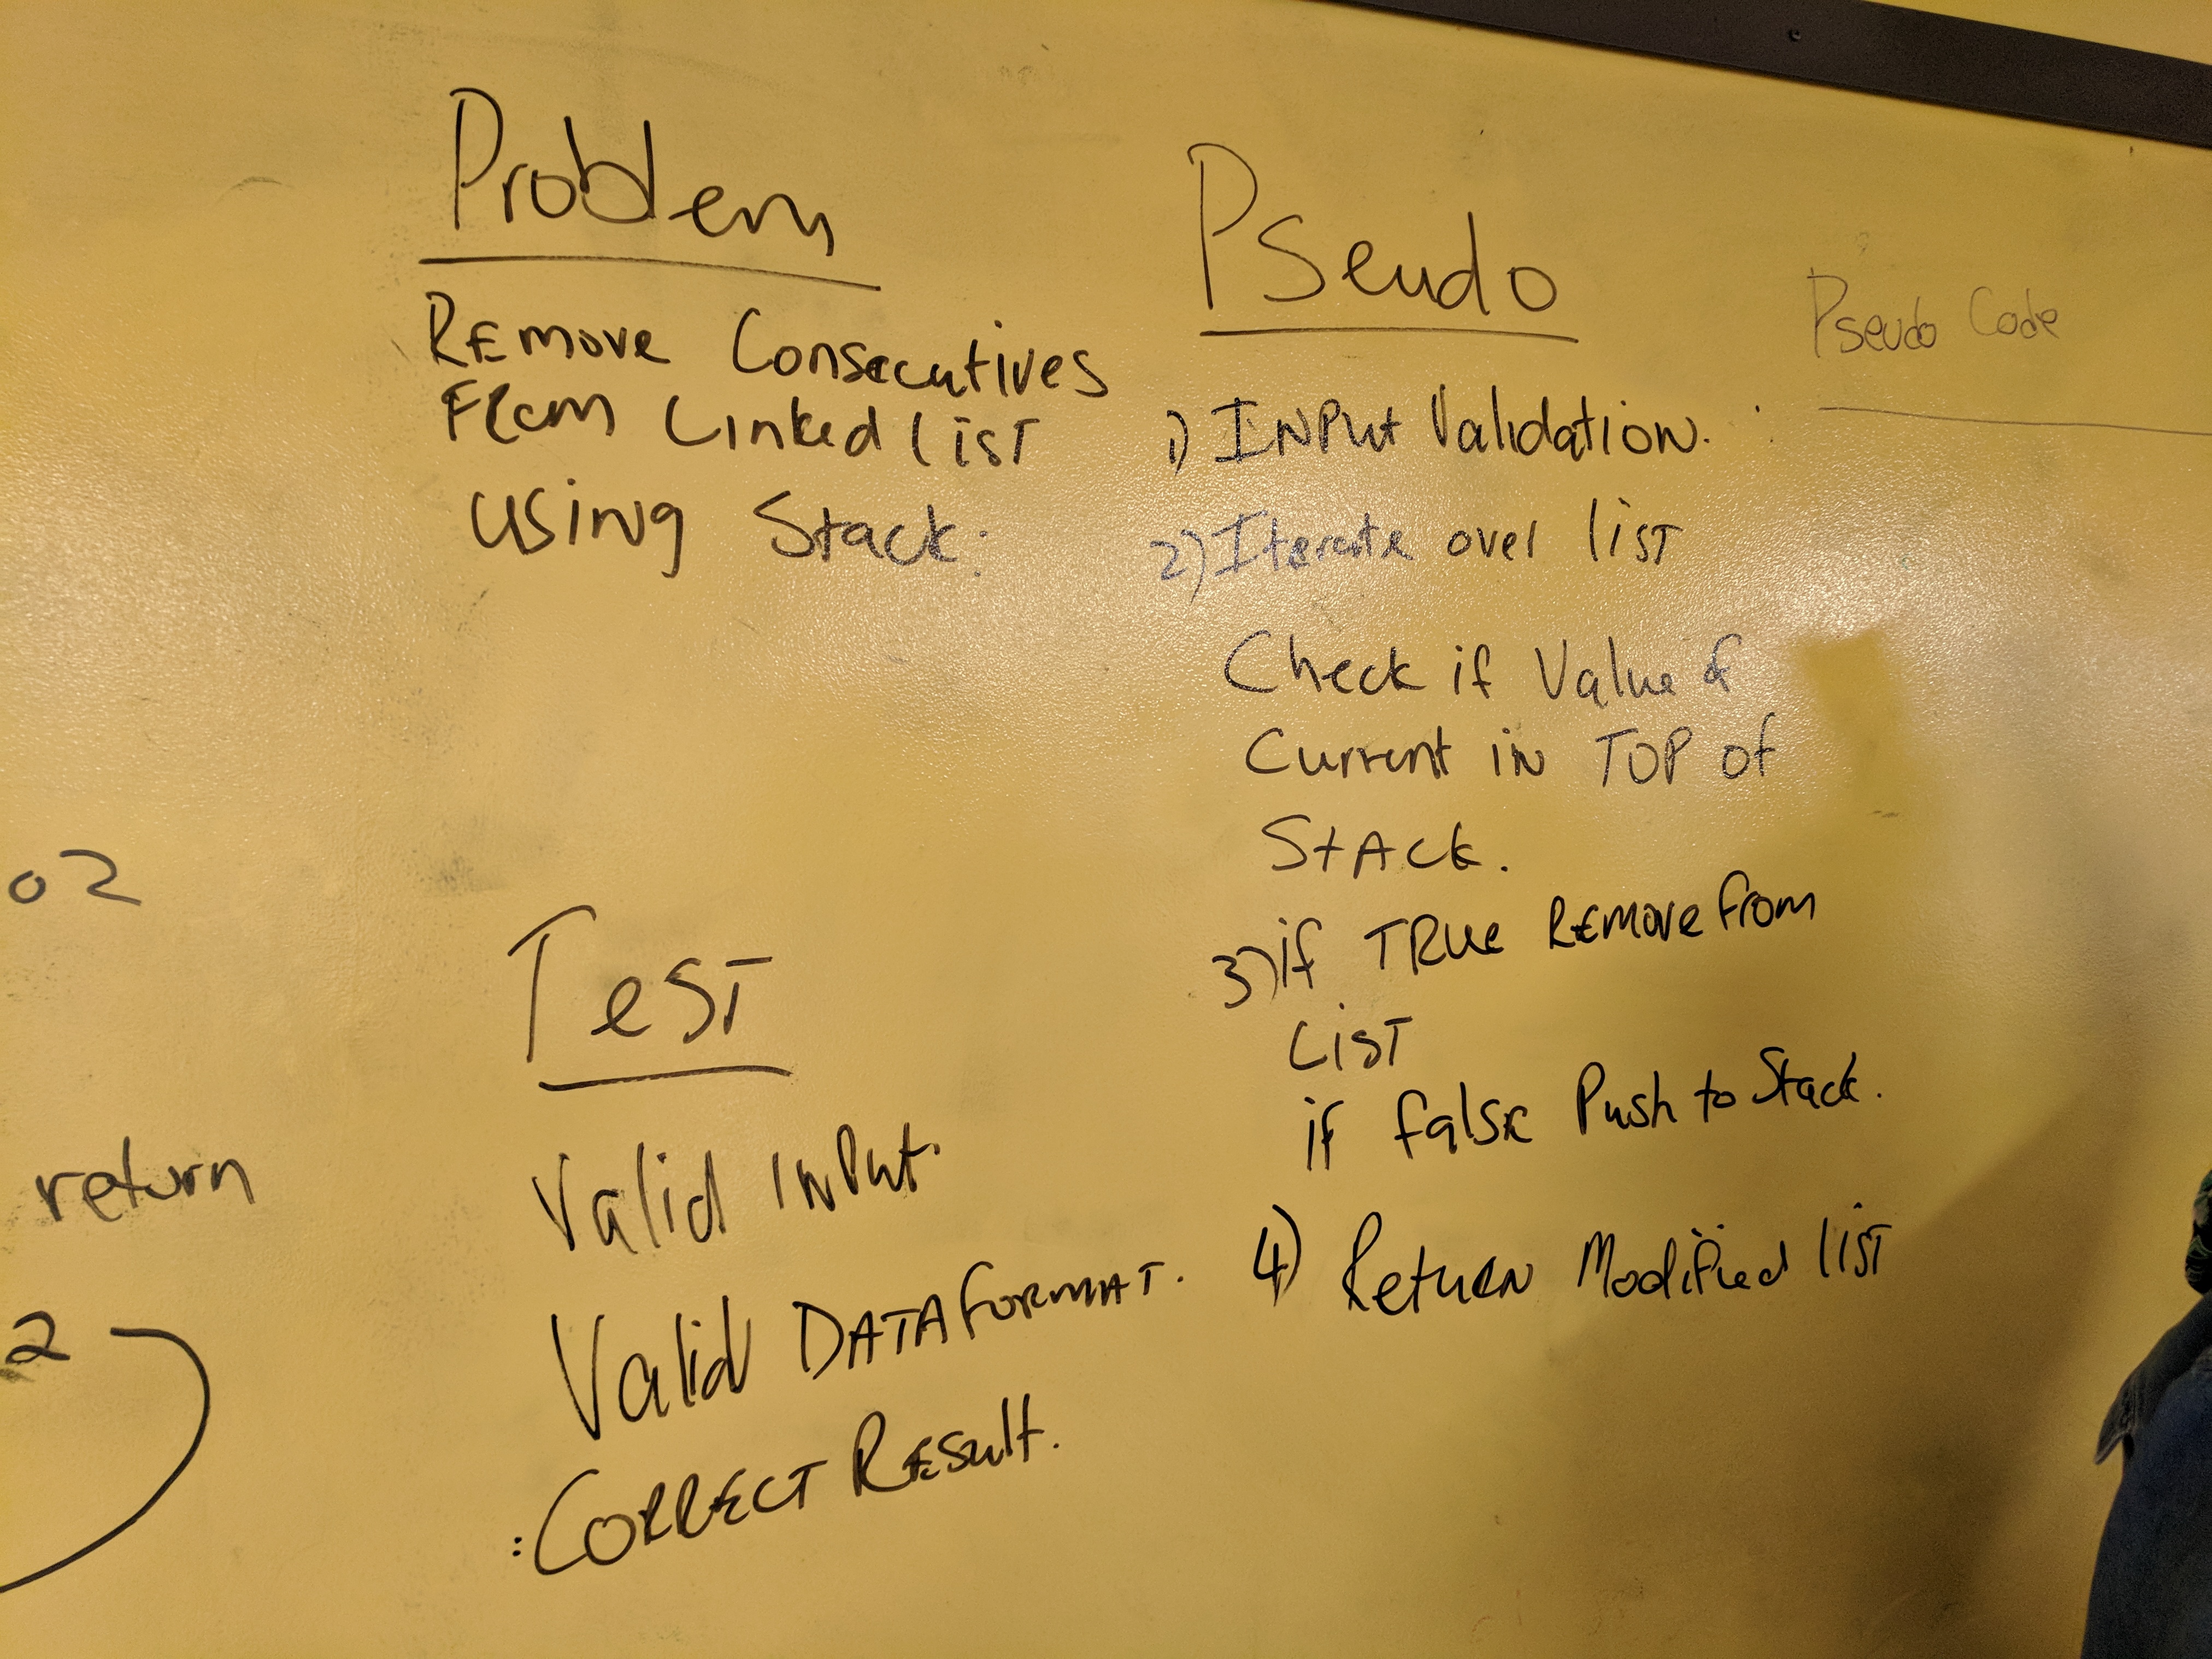 Problem
Remove Consecutives
From Linked list
using Stack:
Test
Valid input.
Valid DATA FORMAT.
: CORRECT Result.
Pseudo
1) INPut Validation.
2) Iterate over list
Check if Value of
Current in TOP of
StAck.
3) if TRue Remove from
List
if false Push to Stack.
4) Return Modified list
Pseudo Code
02
return
2